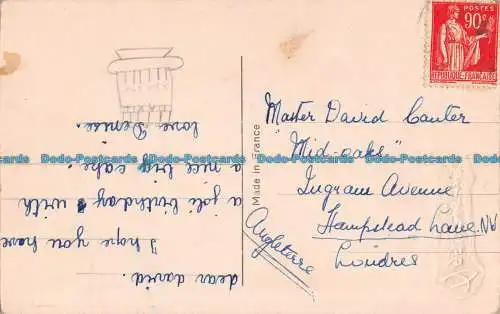 dear david.
I hope you have
a joli birthday with
a nice big cake.
love Denise.
Made in France
POSTES
90c
REPUBLIQUE FRANÇAISE
Master David Canter
"Mid-oaks"
Ingram Avenue
Hampstead Lane. NW
Londres
Angleterre
Dodo-Postcards Dodo-Postcards Dodo-Postcards Dodo-Postcards Dodo-Postcards